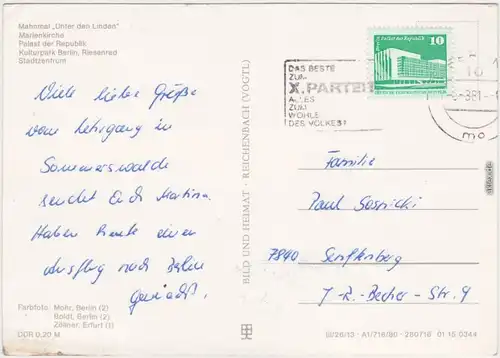 Mahnmal „Unter den Linden"
Marienkirche
Palast der Republik
Kulturpark Berlin, Riesenrad
Stadtzentrum
Viele liebe Grüße
vom Lehrgang in
Sommerswalde
sendet Euch Martina.
Haben heute einen
Ausflug nach Berlin
gemacht.
Farbfoto: Mohr, Berlin (2)
Boldt, Berlin (2)
Zöllner, Erfurt (1)
DDR 0,20 M
BILD UND HEIMAT · REICHENBACH (VOGTL)
DAS BESTE
ZUM
X. PARTEI
ALLES
ZUM
WOHLE
DES VOLKES!
Palast der Republik
10
Familie
Paul Sosnicki
7840 Senftenberg
J.-R.-Becher-Str. 4
III/26/13 A1/716/80 280716 01 15 0344